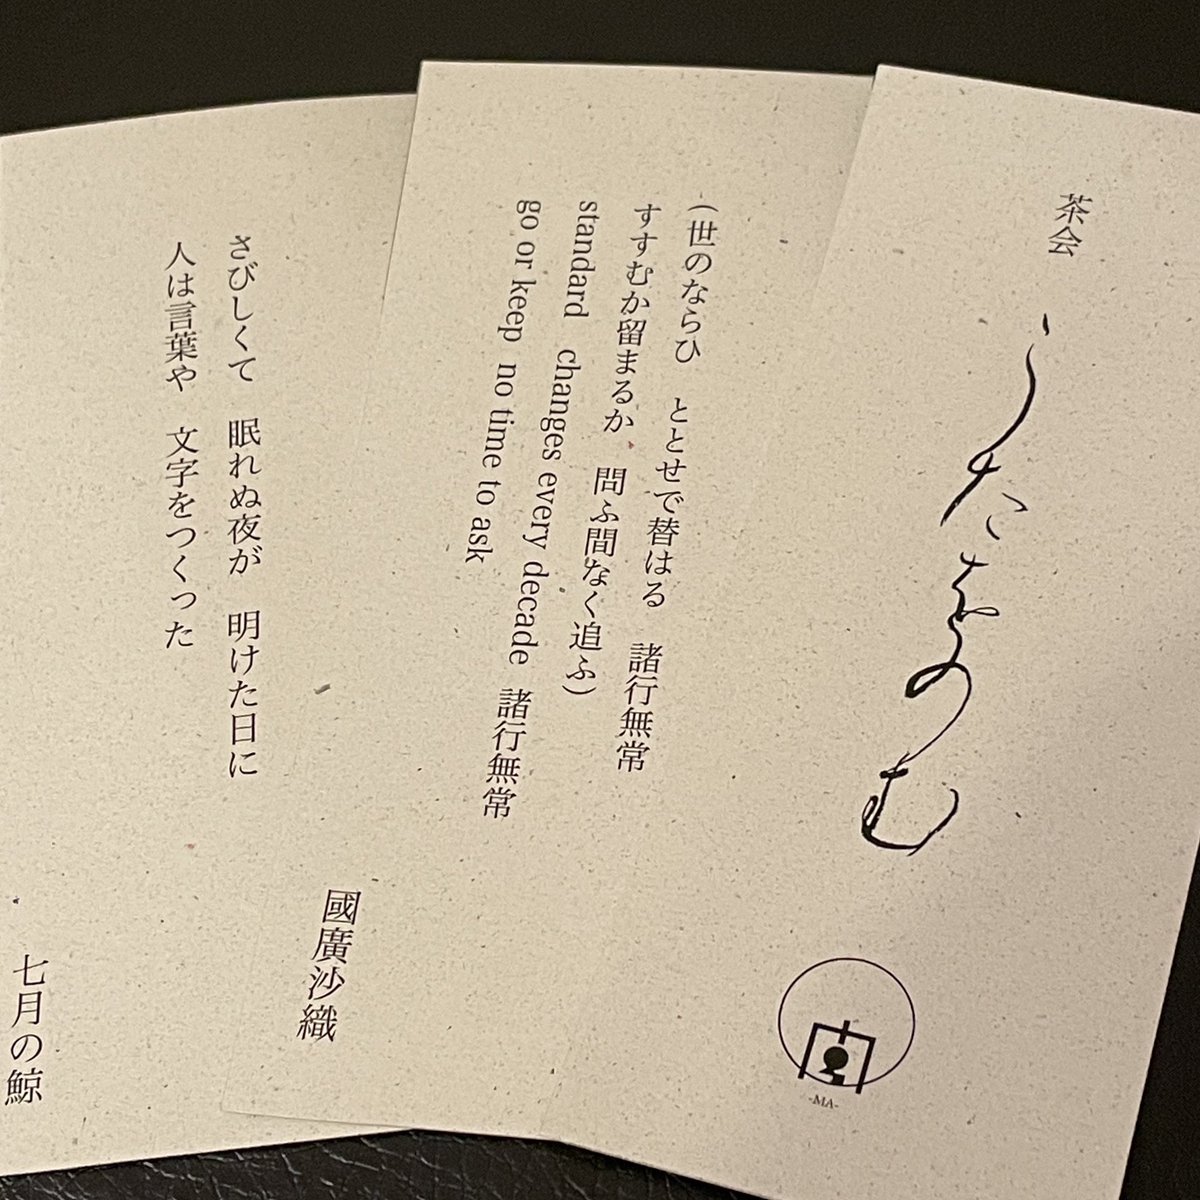 茶会
うたをのむ
-MA-
（世のならひ　ととせで替はる　諸行無常
すすむか留まるか、問ふ間なく追ふ）
standard changes every decade 諸行無常
go or keep no time to ask
國廣沙織
さびしくて　眠れぬ夜が　明けた日に
人は言葉や　文字をつくった
七月の鯨